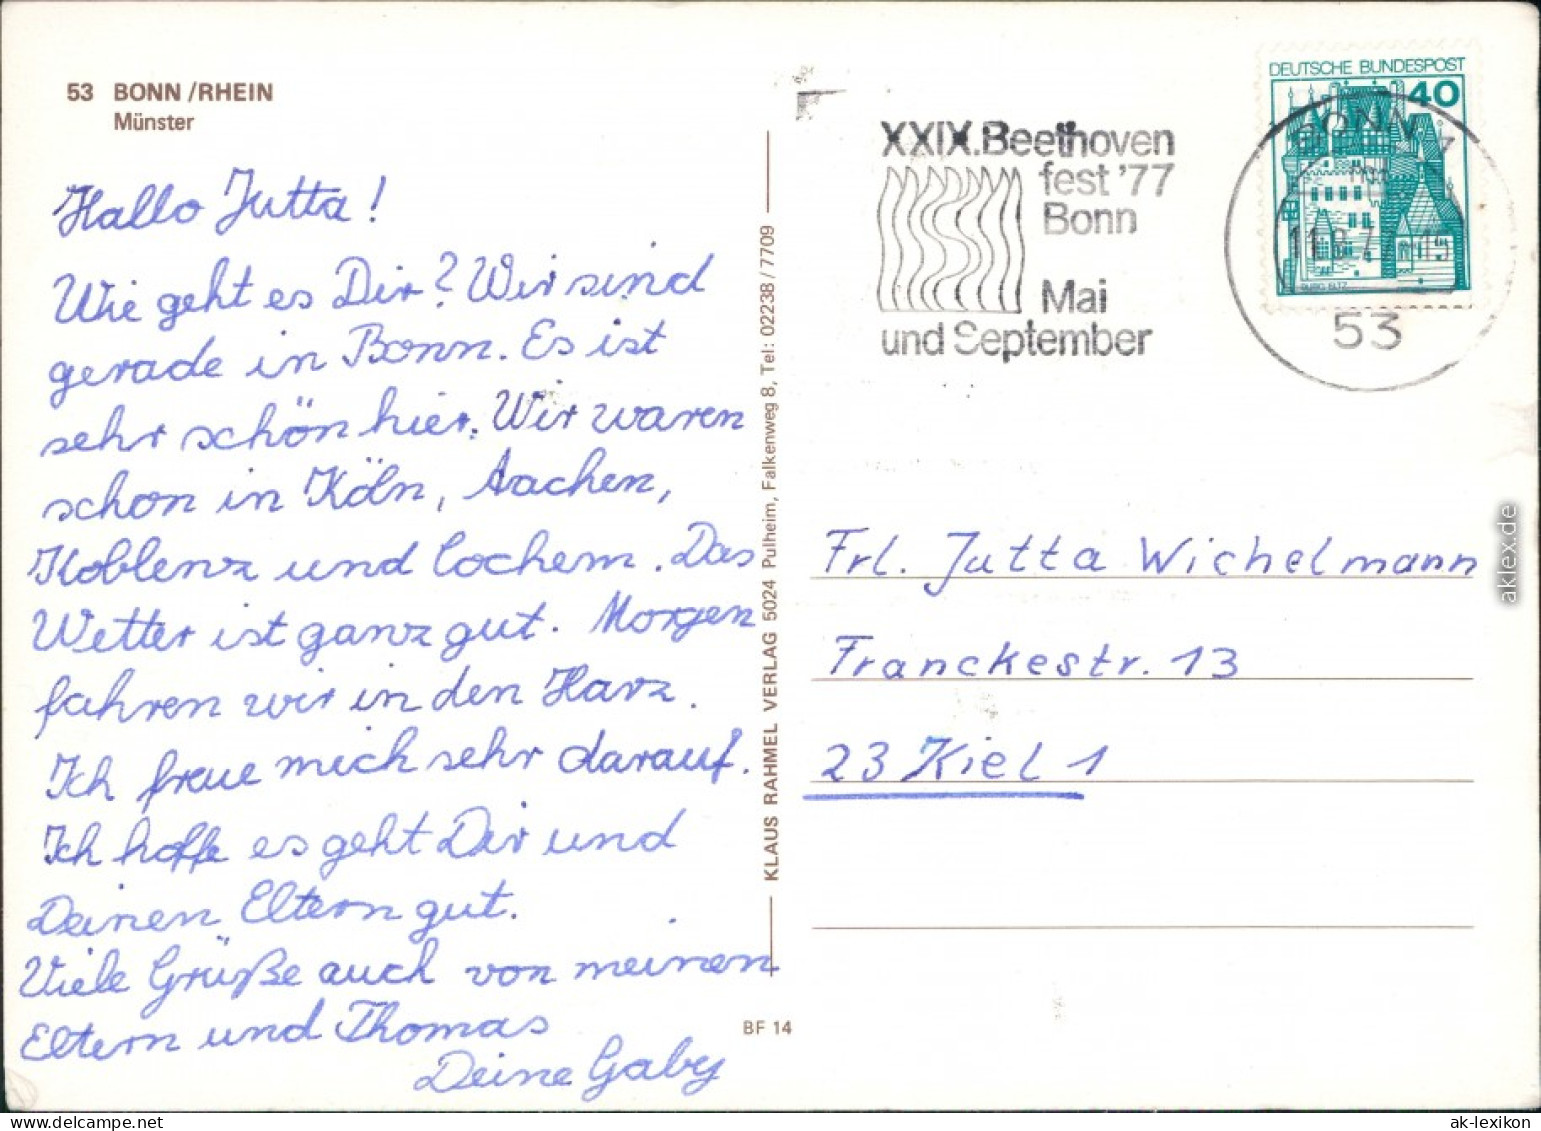 53 BONN /RHEIN
Münster
Hallo Jutta!
Wie geht es Dir? Wir sind
gerade in Bonn. Es ist
sehr schön hier. Wir waren
schon in Köln, Aachen,
Koblenz und Cochem. Das
Wetter ist ganz gut. Morgen
fahren wir in den Harz.
Ich freue mich sehr darauf.
Ich hoffe es geht Dir und
Deinen Eltern gut.
Viele Grüße auch von meinen
Eltern und Thomas
Deine Gaby
KLAUS RAHMEL VERLAG 5024 Pulheim, Falkenweg 8, Tel: 02238/7709
BF 14
XXIX.Beethoven
fest '77
Bonn
Mai
und September
DEUTSCHE BUNDESPOST
40
BURG ELTZ
BONN 1
53
Frl. Jutta Wichelmann
Franckestr. 13
23 Kiel 1
aklex.de
ak-lexikon.com